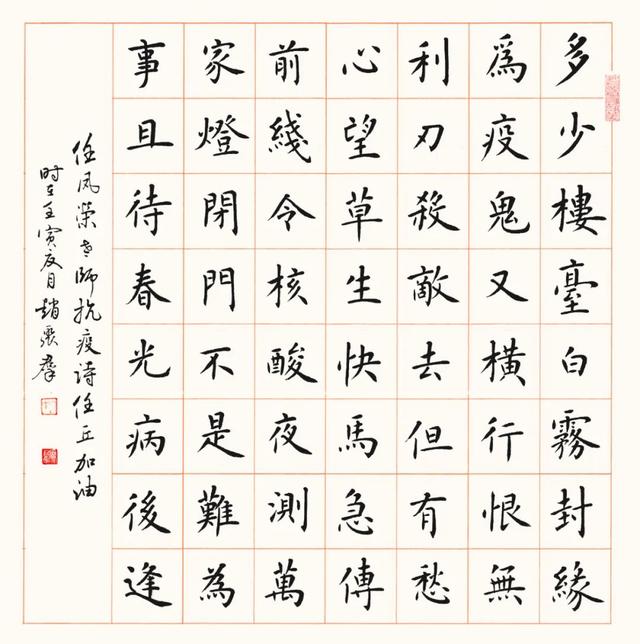 多少樓臺白霧封緣
為疫鬼又橫行恨無
利刃殺敵去但有愁
心望草生快馬急傳
前綫令核酸夜測萬
家燈閉門不是難為
事且待春光病後逢
任凤榮老師抗疫诗任丘加油
时在壬寅